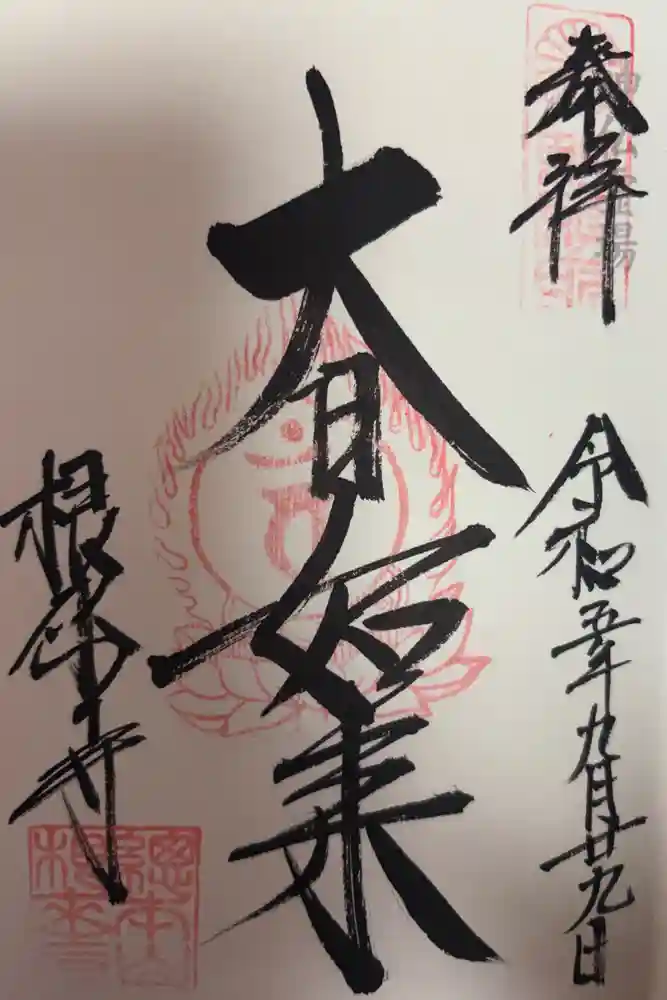 奉拝
神仏霊場
令和五年九月廿九日
大日如来
根来寺